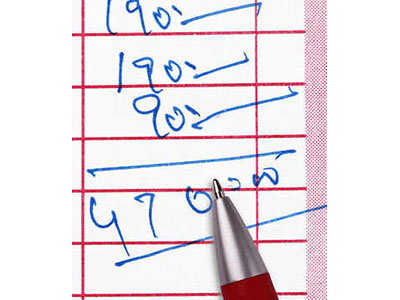 190.—
190.—
90.—
470.00